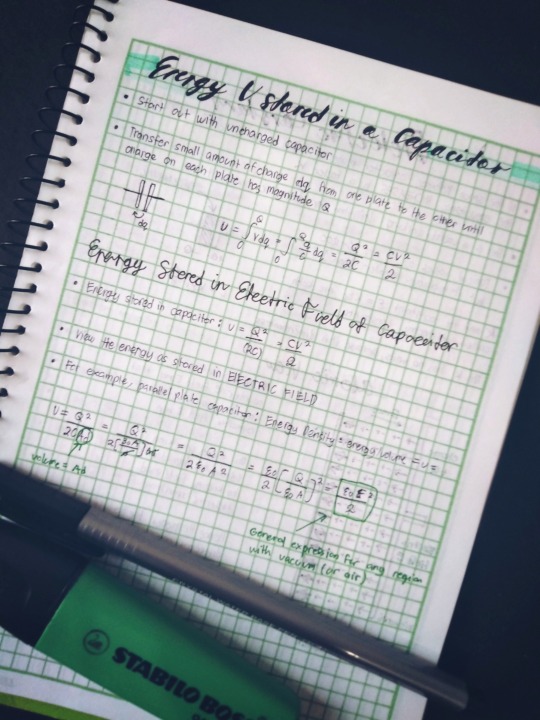 Energy U stored in a Capacitor
• Start out with uncharged capacitor
• Transfer small amount of charge dq from one plate to the other until
charge on each plate has magnitude Q
dq
U = ∫₀^Q Vdq = ∫₀^Q q/C dq = Q²/2C = CV²/2
Energy Stored in Electric Field of Capacitor
• Energy stored in capacitor: U = Q²/(2C) = CV²/2
• View the energy as stored in ELECTRIC FIELD
• For example, parallel plate capacitor: Energy Density = energy/volume = u =
= Q²/ = Q²/ = Q²/ = ε₀/2 [Q/ε₀A]² = ε₀E²/2
volume = Ad
General expression for any region
with vacuum (or air)
STABILO BOSS